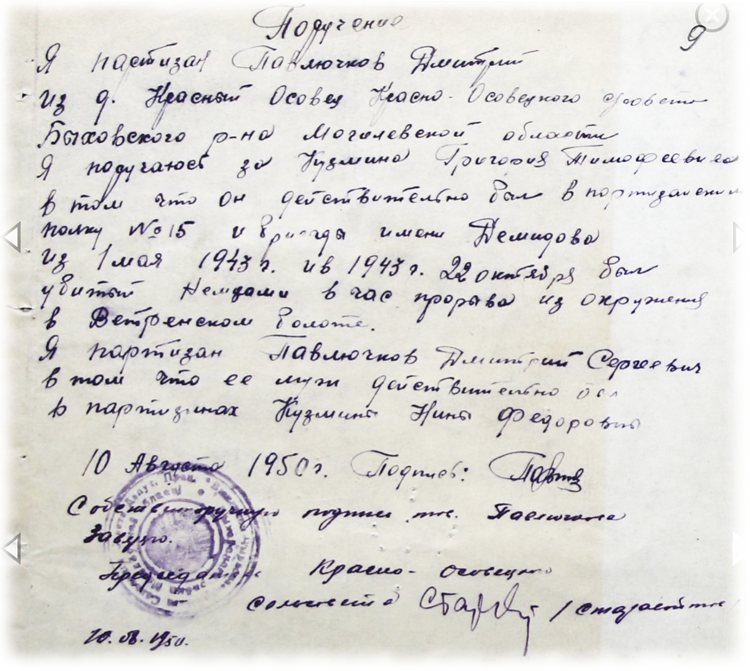 Поручение
9
Я партизан Павлючков Дмитрий
из д. Красный Осовец Красно-Осовецкого с/совета
Быховского р-на Могилевской области
Я поручаюсь за Кузмина Григория Тимофеевича
в том что он действительно был в партизанском
полку № 15 и бригады имени Демидова
из 1 мая 1943 г. и в 1943 г. 22 октября был
убитый Немцами в час прорыва из окружения
в Ветренском болоте.
Я партизан Павлючков Дмитрий Сергеевич
в том что ее муж действительно был
в партизанах Кузмина Нина Федоровна
10 Августа 1950 г. Подпись:
Собственноручную подпись тов. Павлючкова
Заверяю.
Председатель Красно-Осовецкого
сельсовета
10.08.1950.